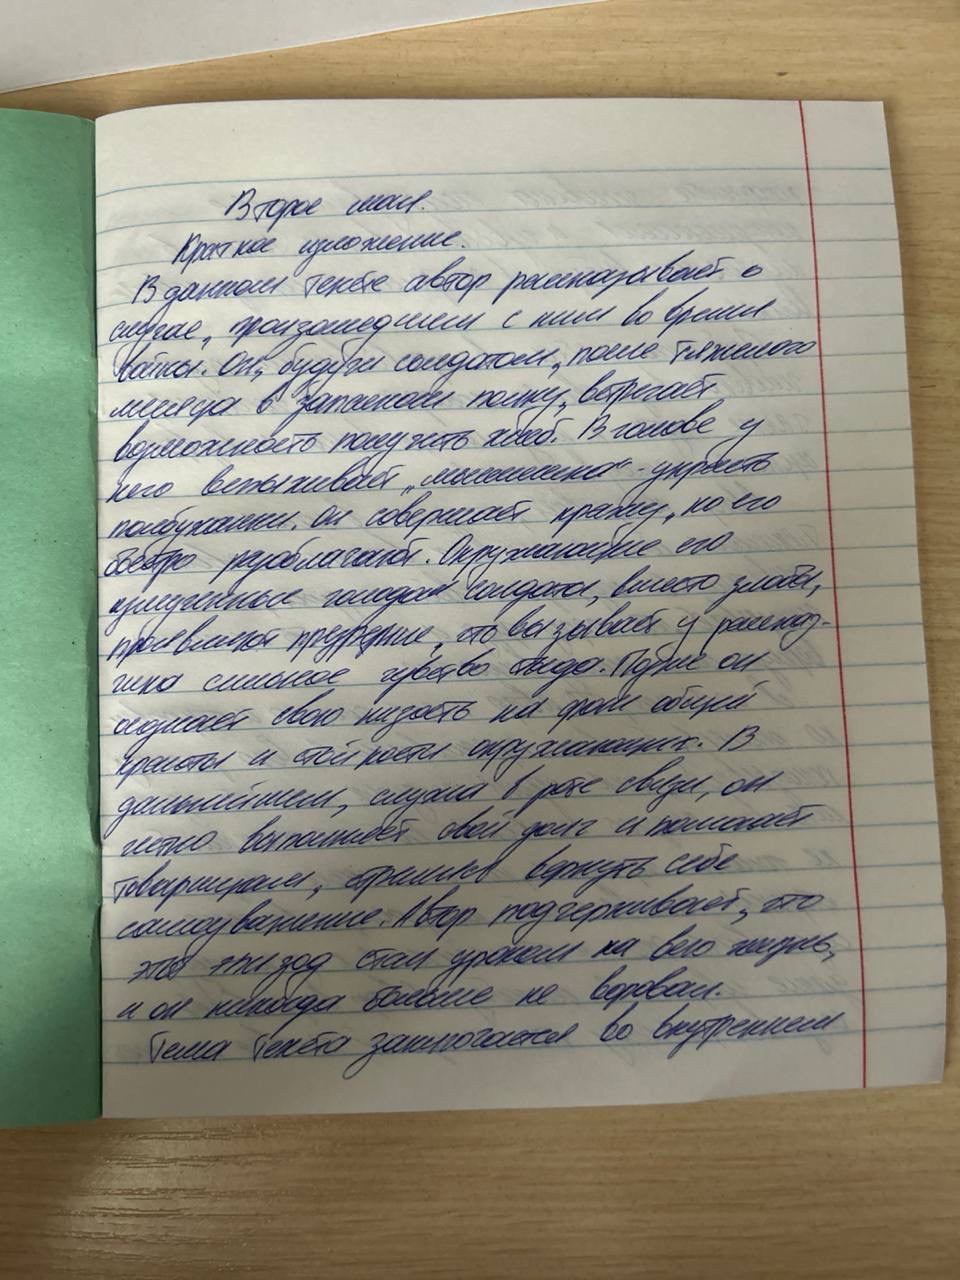 Второе мая.
Краткое изложение.
В данном тексте автор рассказывает о
случае, произошедшем с ним во время
войны. Он, будучи солдатом, после тяжелого
месяца в запасном полку, встречает
возможность получить хлеб. В голове у
него вспыхивает - украсть
полбуханки. Он совершает кражу, но его
быстро разоблачают. Окружающие его
измученные голодом солдаты, вместо злобы,
проявляют презрение, что вызывает у рассказ-
чика сильное чувство стыда. Позже он
осознает свою низость на фоне общей
красоты и стойкости окружающих. В
дальнейшем, служа в роте связи, он
честно выполняет свой долг и помогает
товарищам, стремясь вернуть себе
самоуважение. Автор подчеркивает, что
этот эпизод стал уроком на всю жизнь,
и он никогда больше не воровал.
Тема текста заключается во внутреннем